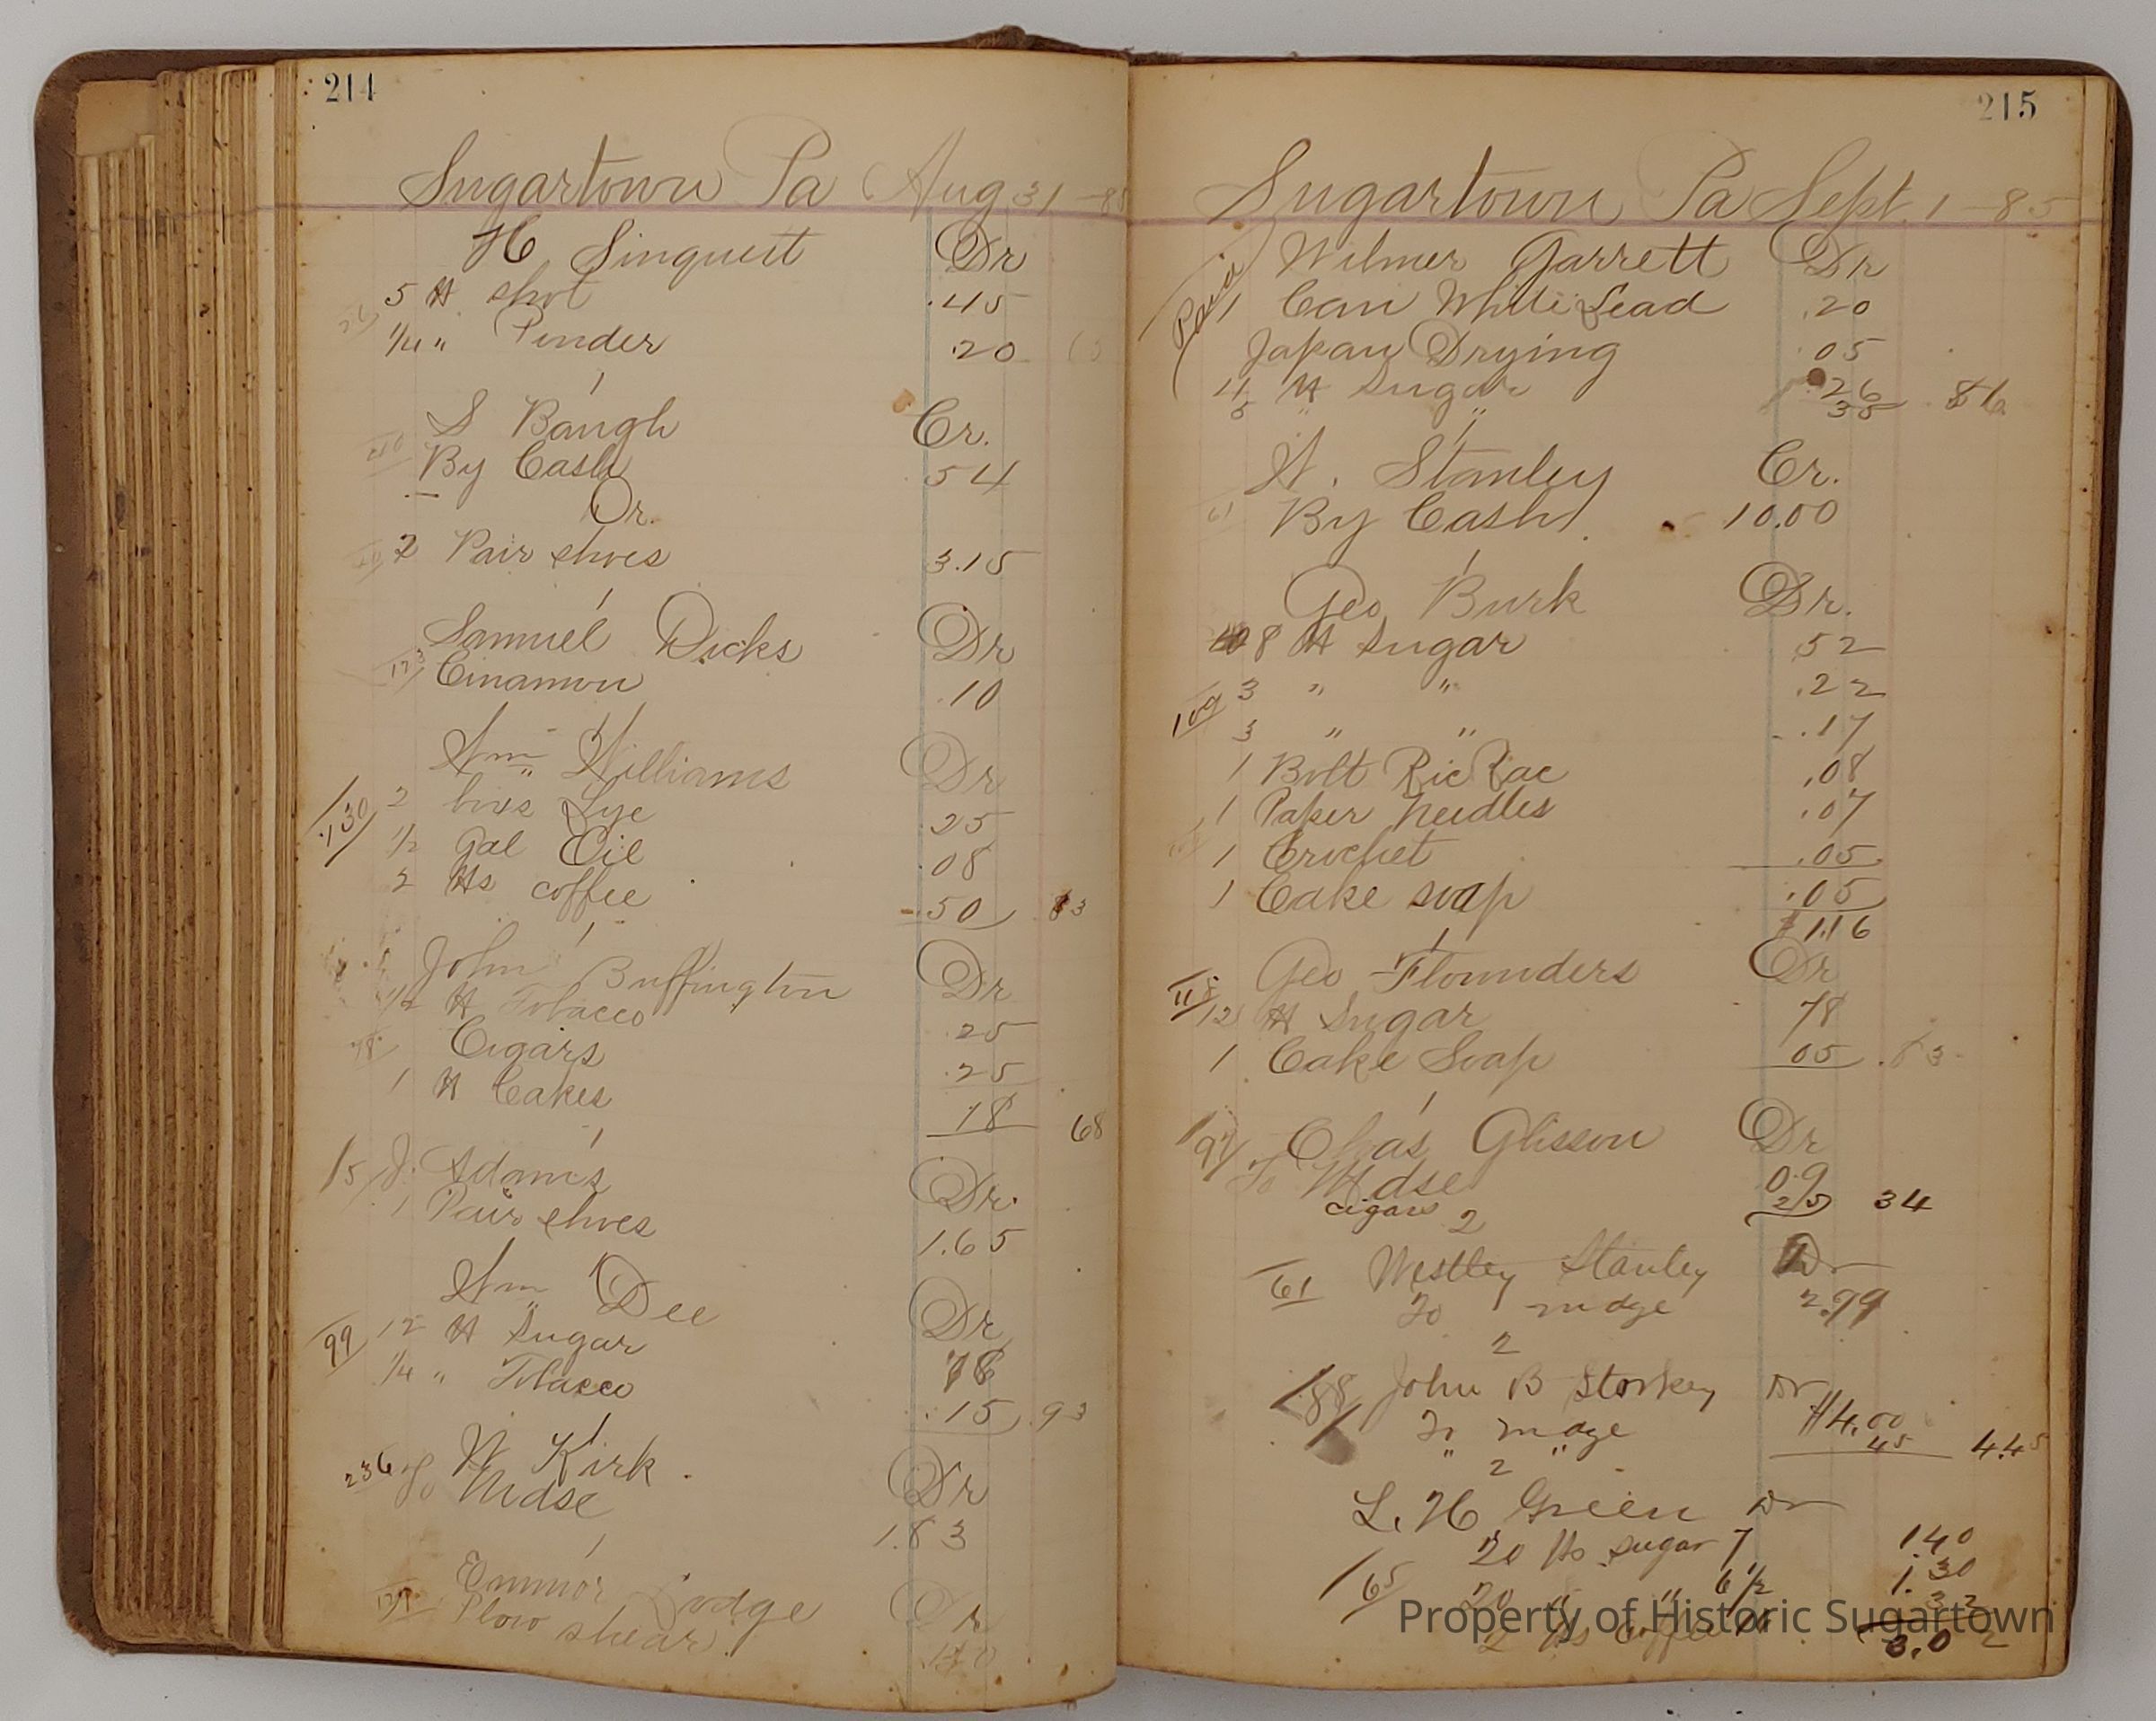 214
Sugartown Pa Aug 31 - 85
H Sinquett Dr
5 ℔ shot .45
1/4 " Powder .20
1
S Baugh Cr.
By Cash 54
Dr.
2 Pair shoes 3.15
1
Samuel Dicks Dr
Cinamon .10
1
Wm Williams Dr
130 2 boxes Lye .25
1/2 Gal Oil .08
2 ℔s coffee .50 83
1
John Buffington Dr
1/2 ℔ Tobacco .25
78 Cigars .25
1 ℔ Cakes 18 68
1
15 J. Adams Dr.
1 Pair shoes 1.65
1
Wm Dee Dr
99 12 ℔ Sugar 78
1/4 " Tobacco .15 .93
1
236 W Kirk. Dr
To Mdse 1.83
1
Emmor Dr
Plow shear
215
Sugartown, Pa Sept. 1 - 85
Paid Wilmer Garrett Dr
1 Can White Lead .20
Japan Drying .05
4 ℔ Sugar .26
5 " " 35 86
1
W. Stanley Cr.
61 By Cash. 10.00
1
Geo Burk Dr.
8 ℔ Sugar .52
109 3 " " .22
3 " " .17
1 Bolt Ric Rac .08
1 Paper Needles .07
1 Crochet .05
1 Cake soap .05
$1.16
1
Geo Flounders Dr
118 12 ℔ Sugar 78
1 Cake Soap 05 .83
1
197 Chas Glisson Dr
To Mdse 09
cigars 25 34
2
Westley Stanley Dr
61 To mdge 2.99
2
188 John B Storkey Dr
To mdge $4.00
" " 45 4.45
2
L. H Green Dr
20 ℔s sugar 7 1.40
165 20 " " 6 1/2 1.30
2 ℔s Coffee 32
3.02
Property of Historic Sugartown